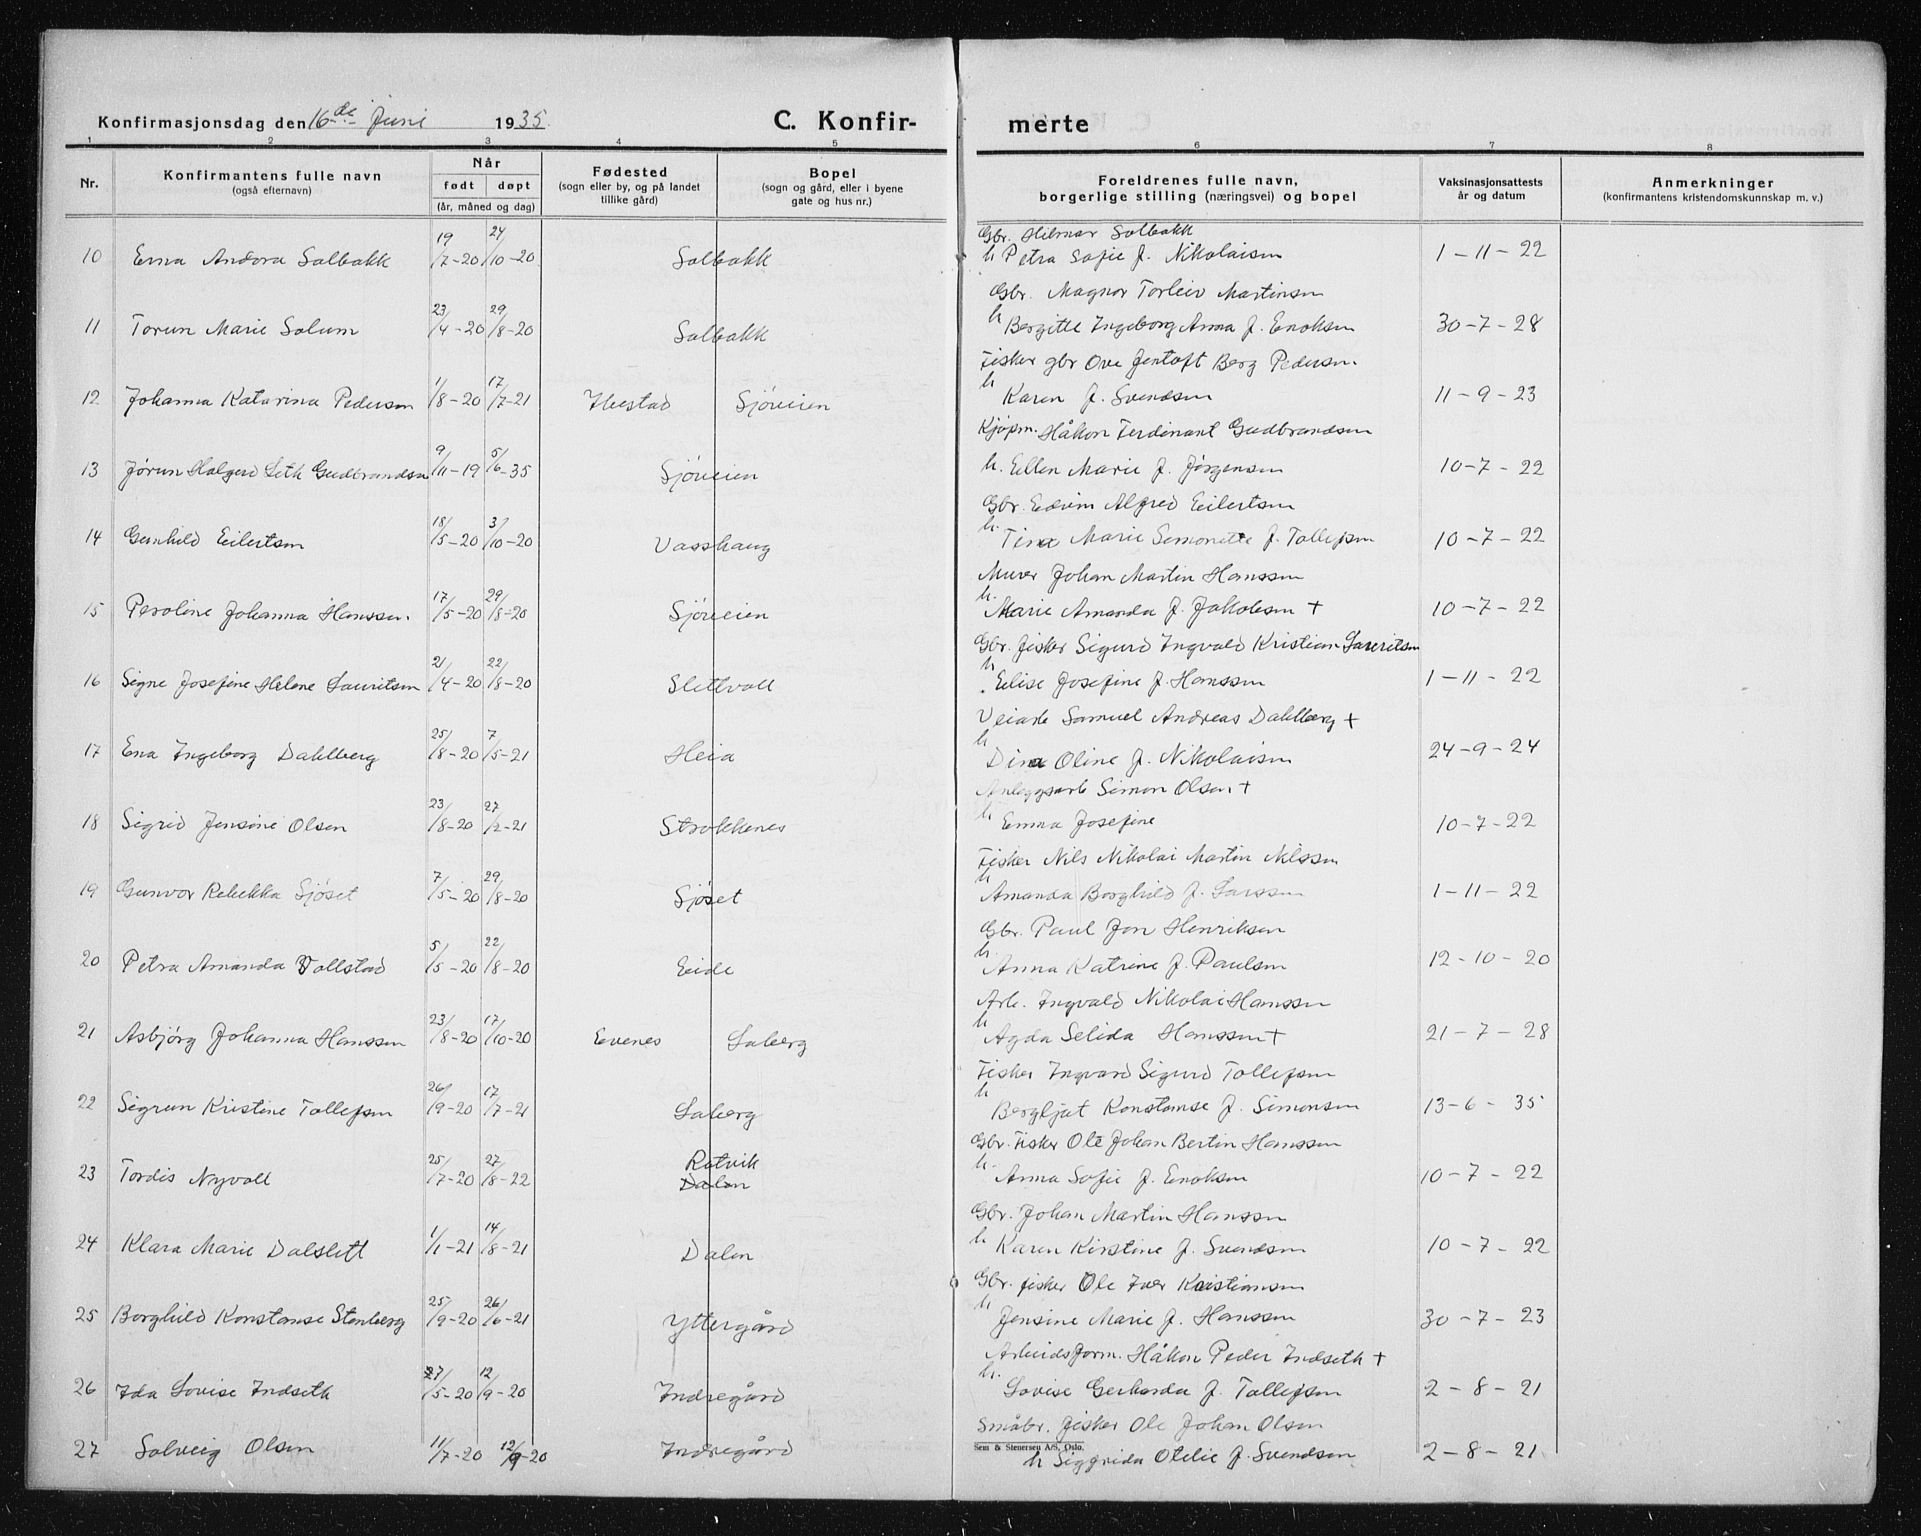 Konfirmasjonsdag den 16de Juni 1935. C. Konfir- merte
1 2 3 4 5 6 7 8
Nr. Konfirmantens fulle navn (også efternavn) Når født døpt (år, måned og dag) Fødested (sogn eller by, og på landet tillike gård) Bopel (sogn og gård, eller i byene gate og hus nr.) Foreldrenes fulle navn, borgerlige stilling (næringsvei) og bopel Vaksinasjonsattests år og datum Anmerkninger (konfirmantens kristendomskunnskap m. v.)
Gbr. Hilmar Solbakk
10 Erna Andora Solbakk 19/7-20 24/10-20 Solbakk h Petra Sofie f. Nikolaisen 1-11-22
Gbr. Magnor Torleiv Martinsen
11 Torun Marie Solum 23/4-20 29/8-20 Solbakk h Bergitte Ingeborg Anna f. Enoksen 30-7-28
Fisker gbr Ove Jentoft Berg Pedersen
12 Johanna Katarina Pedersen 1/8-20 17/7-21 Ibestad Sjöveien h Karen f. Svendsen 11-9-23
Kjøpm. Håkon Ferdinant Gudbrandsen
13 Jørun Holgerd Seth Gudbrandsen 9/11-19 5/6-35 Sjöveien h. Ellen Marie f. Jørgensen 10-7-22
Gbr. Edvin Alfred Eilertsen
14 Gunhild Eilertsen 18/5-20 3/10-20 Vasshaug h. Tina Marie Semonette f. Tollefsen 10-7-22
Murer Johan Martin Hanssen
15 Peroline Johanna Hanssen. 17/5-20 29/8-20 Sjöveien h. Marie Amanda f. Jakobsen + 10-7-22
Gbr. fisker Sigurd Ingvald Kristian Lauritsen
16 Signe Josefine Helene Lauritsen 21/4-20 22/8-20 Slettvoll h. Elise Josefine f. Hanssen 1-11-22
Veiarb Samuel Andreas Dahlberg +
17 Ena Ingeborg Dahlberg 25/8-20 7/5-21 Heia h Dina Oline f. Nikolaisen 24-9-24
Anleggsarb Simon Olsen +
18 Sigrid Jensine Olsen 23/8-20 27/2-21 Strokkenes h Emma Josefine 10-7-22
Fisker Nils Nikolai Martin Nilssen
19 Gunvor Rebekka Sjöset 7/5-20 29/8-20 Sjöset h Amanda Borghild f. Larssen 1-11-22
Gbr. Paul Jon Henriksen
20 Petra Amanda Vollstad 5/5-20 22/8-20 Eide h. Anna Katrine f. Paulsen 12-10-20
Arb. Ingvald Nikolai Hanssen
21 Asbjörg Johanna Hanssen 23/8-20 17/10-20 Evenes Laberg h Agda Selida Hanssen + 21-7-28
Fisker Ingvard Sigurd Tollefsen
22 Sigrun Kristine Tollefsen 26/9-20 17/7-21 Laberg h Bergljot Konstanse f. Simonsen 13-6-35
Gbr. Fisker Ole Johan Bertin Hanssen
23 Tordis Nyvoll 25/7-20 27/8-22 Rotvik Dalen h. Anna Sofie f. Enoksen 10-7-22
Gbr. Johan Martin Hanssen
24 Klara Marie Dalslett 1/1-21 14/8-21 Dalen h Karen Kirstine f. Svendsen 10-7-22
Gbr. fisker Ole Iver Kristiansen
25 Borghild Konstanse Stenberg 25/9-20 26/6-21 Yttergård h Jensine Marie f. Hanssen 30-7-23
Arbeidsform. Håkon Peder Indseth +
26 Ida Lovise Indseth 27/5-20 12/9-20 Indregård h. Lovise Gerharda f. Tollefsen 2-8-21
Småbr. fisker Ole Johan Olsen
27 Solveig Olsen 11/7-20 12/9-20 Indregård h Siggrida Otelie f. Svendsen 2-8-21
Sem & Stenersen A/S, Oslo.